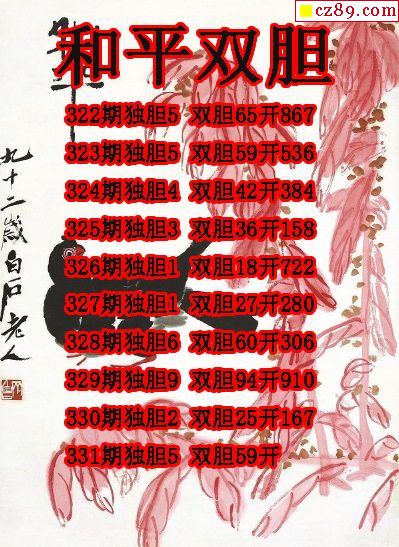 cz89.com
和平双胆
322期独胆5 双胆65开867
323期独胆5 双胆59开536
324期独胆4 双胆42开384
325期独胆3 双胆36开158
326期独胆1 双胆18开722
327期独胆1 双胆27开280
328期独胆6 双胆60开306
329期独胆9 双胆94开910
330期独胆2 双胆25开167
331期独胆5 双胆59开
九十二岁白石老人